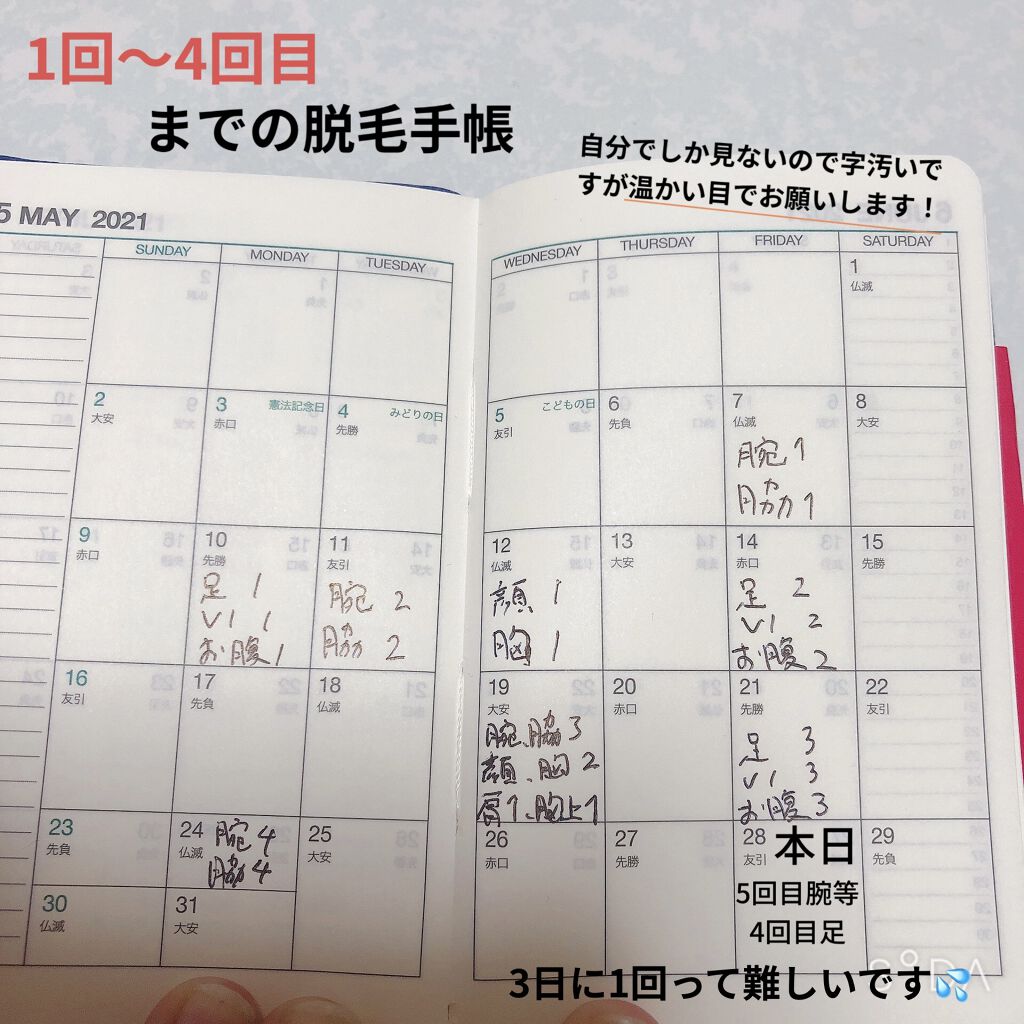 1回〜4回目
までの脱毛手帳
自分でしか見ないので字汚いで
すが温かい目でお願いします！
5 MAY 2021
SUNDAY MONDAY TUESDAY WEDNESDAY THURSDAY FRIDAY SATURDAY
1
仏滅
2
大安
3 憲法記念日
赤口
4 みどりの日
先勝
5 こどもの日
友引
6
先負
7
仏滅
腕1
脇1
8
大安
9
赤口
10
先勝
足 1
VI 1
お腹1
11
友引
腕 2
脇 2
12
仏滅
顔 1
胸 1
13
大安
14
赤口
足 2
VI 2
お腹2
15
先勝
16
友引
17
先負
18
仏滅
19
大安
腕、脇3
顔、胸2
肩1、胸上1
20
赤口
21
先勝
足 3
VI 3
お腹3
22
友引
23
先負
24
仏滅
腕4
脇4
25
大安
26
赤口
27
先勝
28
友引
本日
5回目腕等
4回目足
29
先負
30
仏滅
31
大安
3日に1回って難しいです💦
SODA